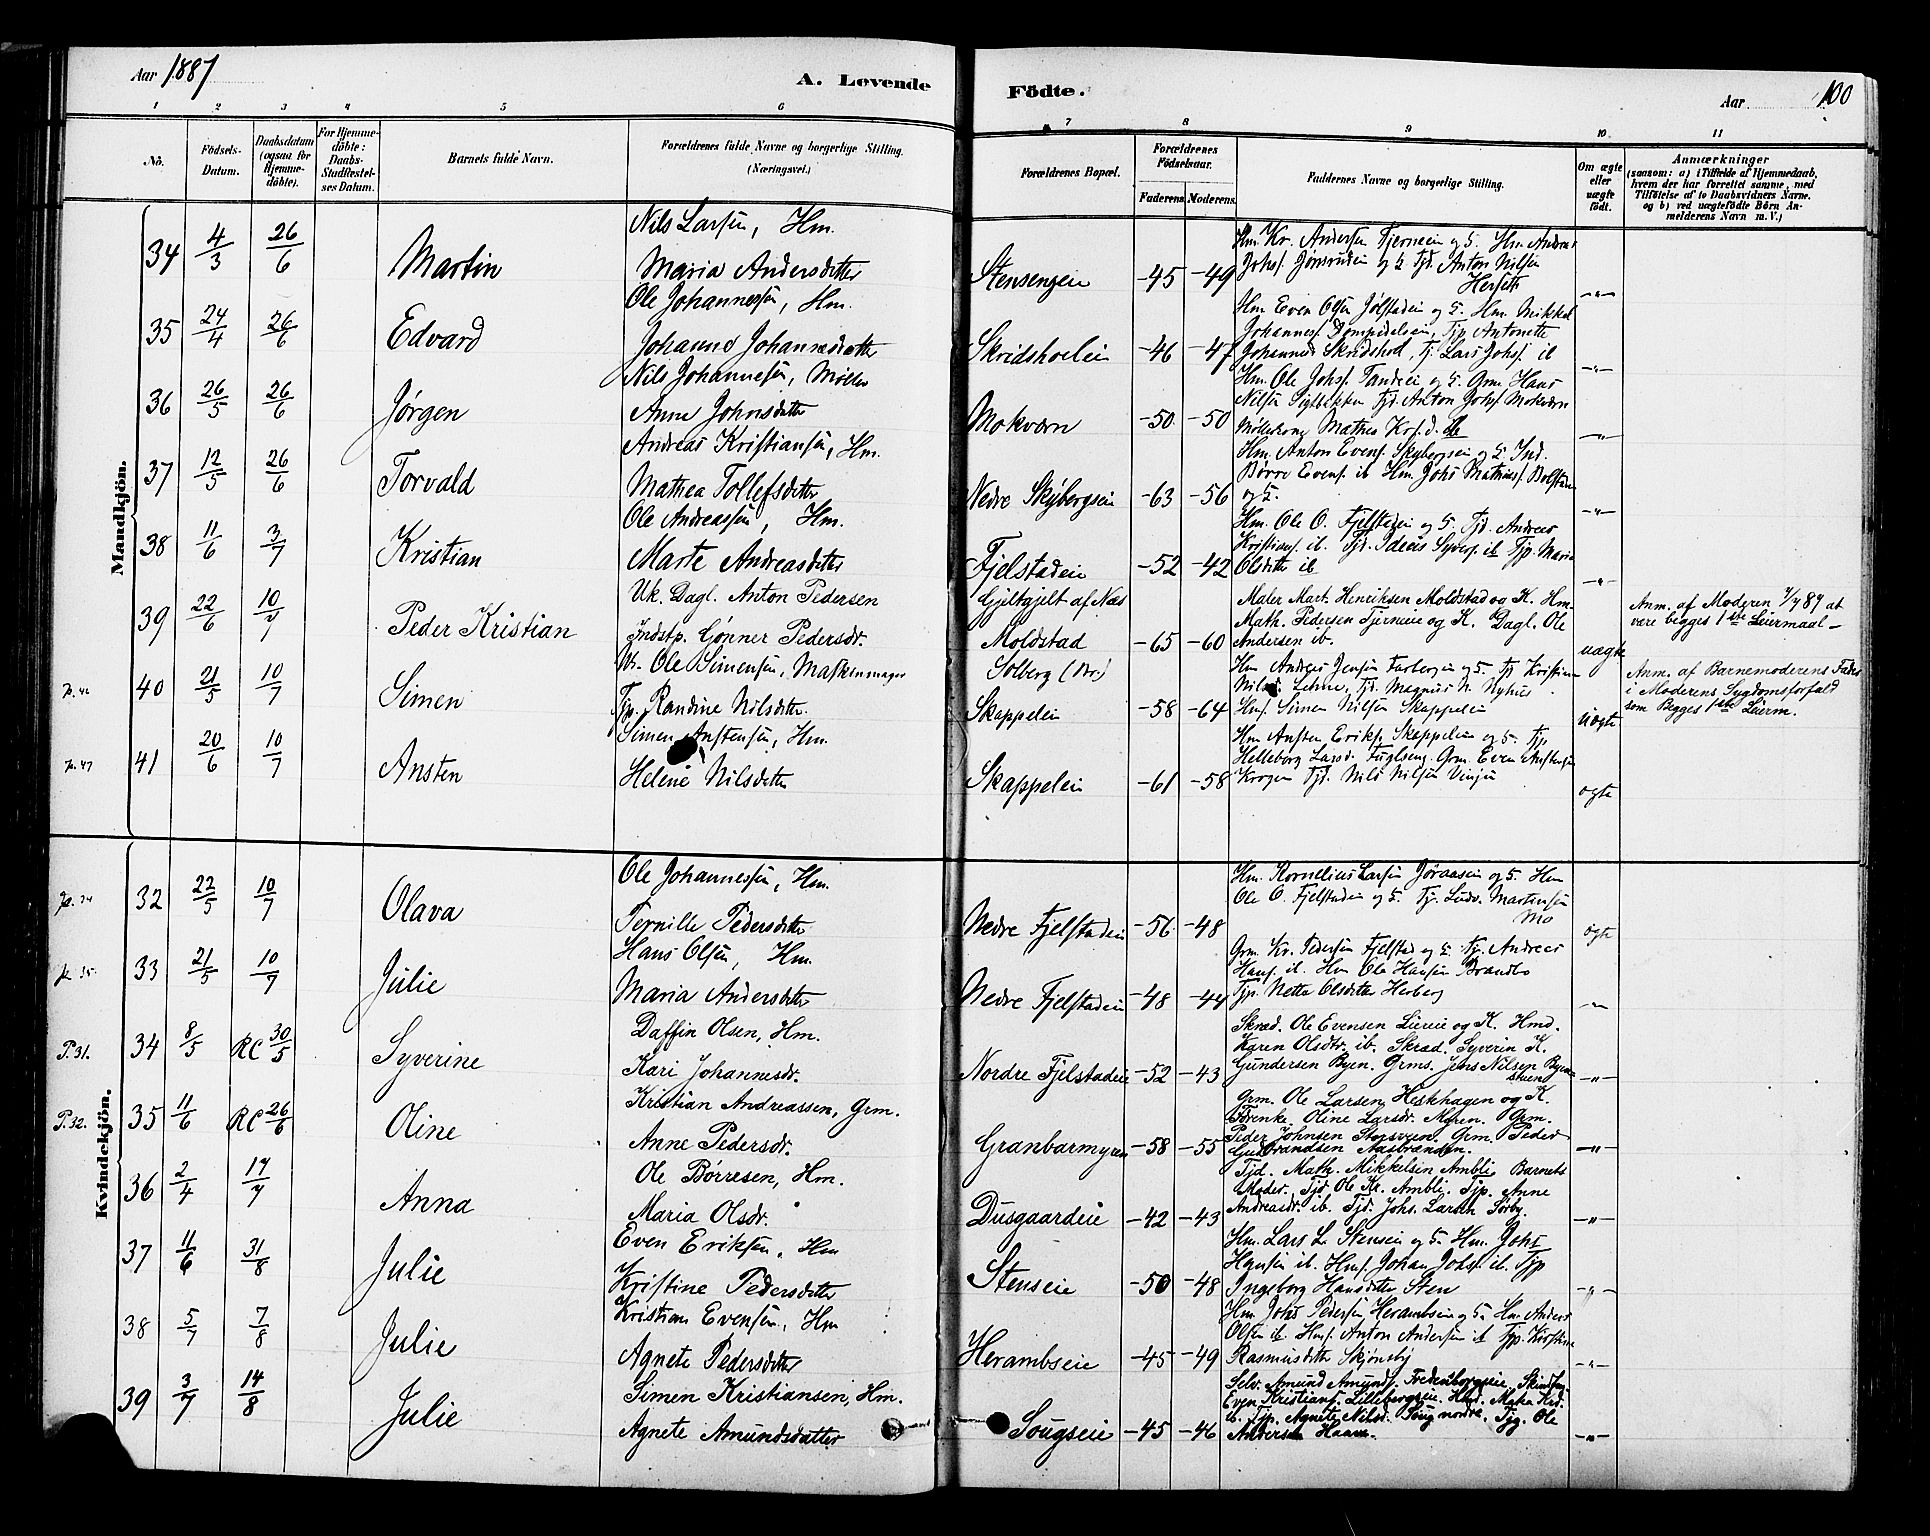 Aar 1887
A. Levende
Födte.
Aar 100
1 2 3 4 5 6 7 8 9 10 11
No.
Födsels-Datum.
Daabsdatum (ogsaa for Hjemme-döbte).
For Hjemme-döbte: Daabs-Stadfæstel-ses Datum.
Barnets fulde Navn.
Forældrenes fulde Navne og borgerlige Stilling. (Næringsvei.)
Forældrenes Bopæl.
Forældrenes Födselsaar.
Faderens Moderens.
Faddernes Navne og borgerlige Stilling.
Om ægte eller uægte födt.
Anmærkninger
(saasom: a) i Tilfælde af Hjemmedaab,
hvem der har forrettet samme, med
Tilföielse af to Daabsvidners Navne,
og b) ved uægtefödte Börn An-
melderens Navn m. V.)
Mandkjön.
34 4/3 26/6 Martin
Nils Larsen, Hm.
Maria Andersdatter
Stensengen -45 -49
Hm. Kr. Andersen Tjerneien og 5. Hm. Andreas
Johs. og 5. Tjd. Anton Nilsen
-"-
35 24/4 26/6 Edvard
Ole Johannessen, Hm.
Johanne Johannesdatter
Skridshoeleien -46 -47
Hm Even Olsen Jølstadeie og 5. Hm. Mikkel
Johannes Skridshol, Tj. Lars Johs. ib
-"-
36 26/5 26/6 Jørgen
Nils Johannesen, Møller
Anne Johnsdatter
Mokværn -50 -50
Hm. Ole Johs. og 5. Grm. Hans
Nilsen Tjd. Anton Johs. Mokværn
Mathea Krs.d. ib
-"-
37 12/5 26/6 Torvald
Andreas Kristiansen, Hm.
Mathea Tollefsdatter
Nedre Skybergseie -63 -56
Hm. Anton Evens. Skybergseie og 5. Ind.
Børre Evens. ib Hm. Johs Mathias.
og 5.
-"-
38 11/6 3/7 Kristian
Ole Andreassen, Hm.
Marte Andreasdatter
Fjelstadeie -52 -42
Hm. Ole O. Fjelstadeie og 5. Tjd Andreas
Kristians. ib. Tjd. ib Tjp. Maria
Olsdatter ib
-"-
39 22/6 10/7 Peder Kristian
Uk. Dagl. Anton Pedersen
Indstp. Gønner Pedersdr.
Gjeltgjelt af Næs
Moldstad -65 -60
Maler Mart. Henriksen Moldstad og K. Hm.
Math. Pedersen Tjerneie og K. Dagl. Ole
Andersen ib.
uægte
Anm. af Moderen 7/7 87 at
være begges 1ste Leiermaal-
p. 46
40 21/5 10/7 Simen
Uk. Ole Simensen, Maskinmager
Tjp. Randine Nilsdatter
Solberg (Nr.)
Skappeleie -58 -64
Hm Andreas Jensen og 5. Tj Kristian
Nilsd. Tjd. Magnus N. Nyhus
Hmf. Simen Nilsen Skappeleie
uægte
Anm. af Barnemoderens Fader
i Moderens Sygdomsforfald
som Begges 1ste Leierm.
p. 47
41 20/6 10/7 Ansten
Simen Anstensen, Hm.
Helene Nilsdatter
Skappeleie -61 -58
Hm Ansten Eriks. Skappeleie og 5. Tjp
Helleborg Larsd. Fuglseng. Grm. Even Anstensen
Krogen Tjd. Nils Nilsen
ægte
Kvindekjön.
32 22/5 10/7 Olava
Ole Johannessen, Hm.
Pernille Pedersdatter
Nedre Fjelstadeie -56 -48
Hm. Kornelius Larsen og 5. Hm
Ole O. Fjelstadeie og 5. Tj. Ludv. Martinsen
Mo
ægte
p. 35.
33 21/5 10/7 Julie
Hans Olsen, Hm.
Maria Andersdatter
Nedre Fjelstadeie -48 -44
Grm. Kr. Pedersen Fjelstad og 5. Tj. Andreas
Hans. ib. Hm Ole Hansen Brandbo
Tjp. Netta Olsdatter Herberg
-"-
P. 31.
34 8/5 RC 30/5 Syverine
Daffin Olsen, Hm.
Kari Johannesdr.
Nordre Fjelstadeie -52 -43
Skræd. Ole Evensen Lieeie og K. Hmd.
Karen Olsdtr. ib. Skræd. Syverin K.
Gundersen Byen. Grms. Jens Nilsen Byen
-"-
P. 32.
35 11/6 RC 26/6 Oline
Kristian Andreassen, Grm.
Anne Pedersdr.
Granbarmyren -58 -55
Grm. Ole Larsen Heskhagen og K.
Oline Larsdr. Myren. Grm.
Peder Johnsen Storsveen. Grm. Peder
Gudbrandsen Aasbranden.
-"-
36 2/4 17/7 Anna
Ole Børresen, Hm.
Maria Olsdr.
Dusgaardeie -42 -43
Tjd. Math. Mikkelsen Ambli. Barnets
Moder. Tjd Ole Kr. Ambli. Tjp. Anne
Andreasdr. ib. Tjd. Johs. Larsen Sørby.
-"-
37 11/6 31/8 Julie
Even Eriksen, Hm
Kristine Pedersdatter
Stenseie -50 -48
Hm. Lars L. Stenseie og 5. Hm. Johs
Hansen ib. Hmf. Johan Johs. ib. Tjp
Ingeborg Hansdatter Sten
-"-
38 5/7 7/8 Julie
Kristian Evensen, Hm
Agnete Pedersdatter
Herambseie -45 -49
Hm Johs Pedersen Herambseie og 5. Hm Anders
Olsen ib. Hmf. Anton Andersen ib Tjp. Kristine
Rasmusdatter Skjønsby
-"-
39 3/7 14/8 Julie
Simen Kristiansen, Hm.
Agnete Amundsdatter
Sougseie -45 -46
Selv. Amund Amunds. Fredenborgseie,
Even Kristians. Lillebergseie. Hmd.
ib. Tjp. Agnete Nilsd. Soug nordre. Tjg. Ole
Andersen
-"-